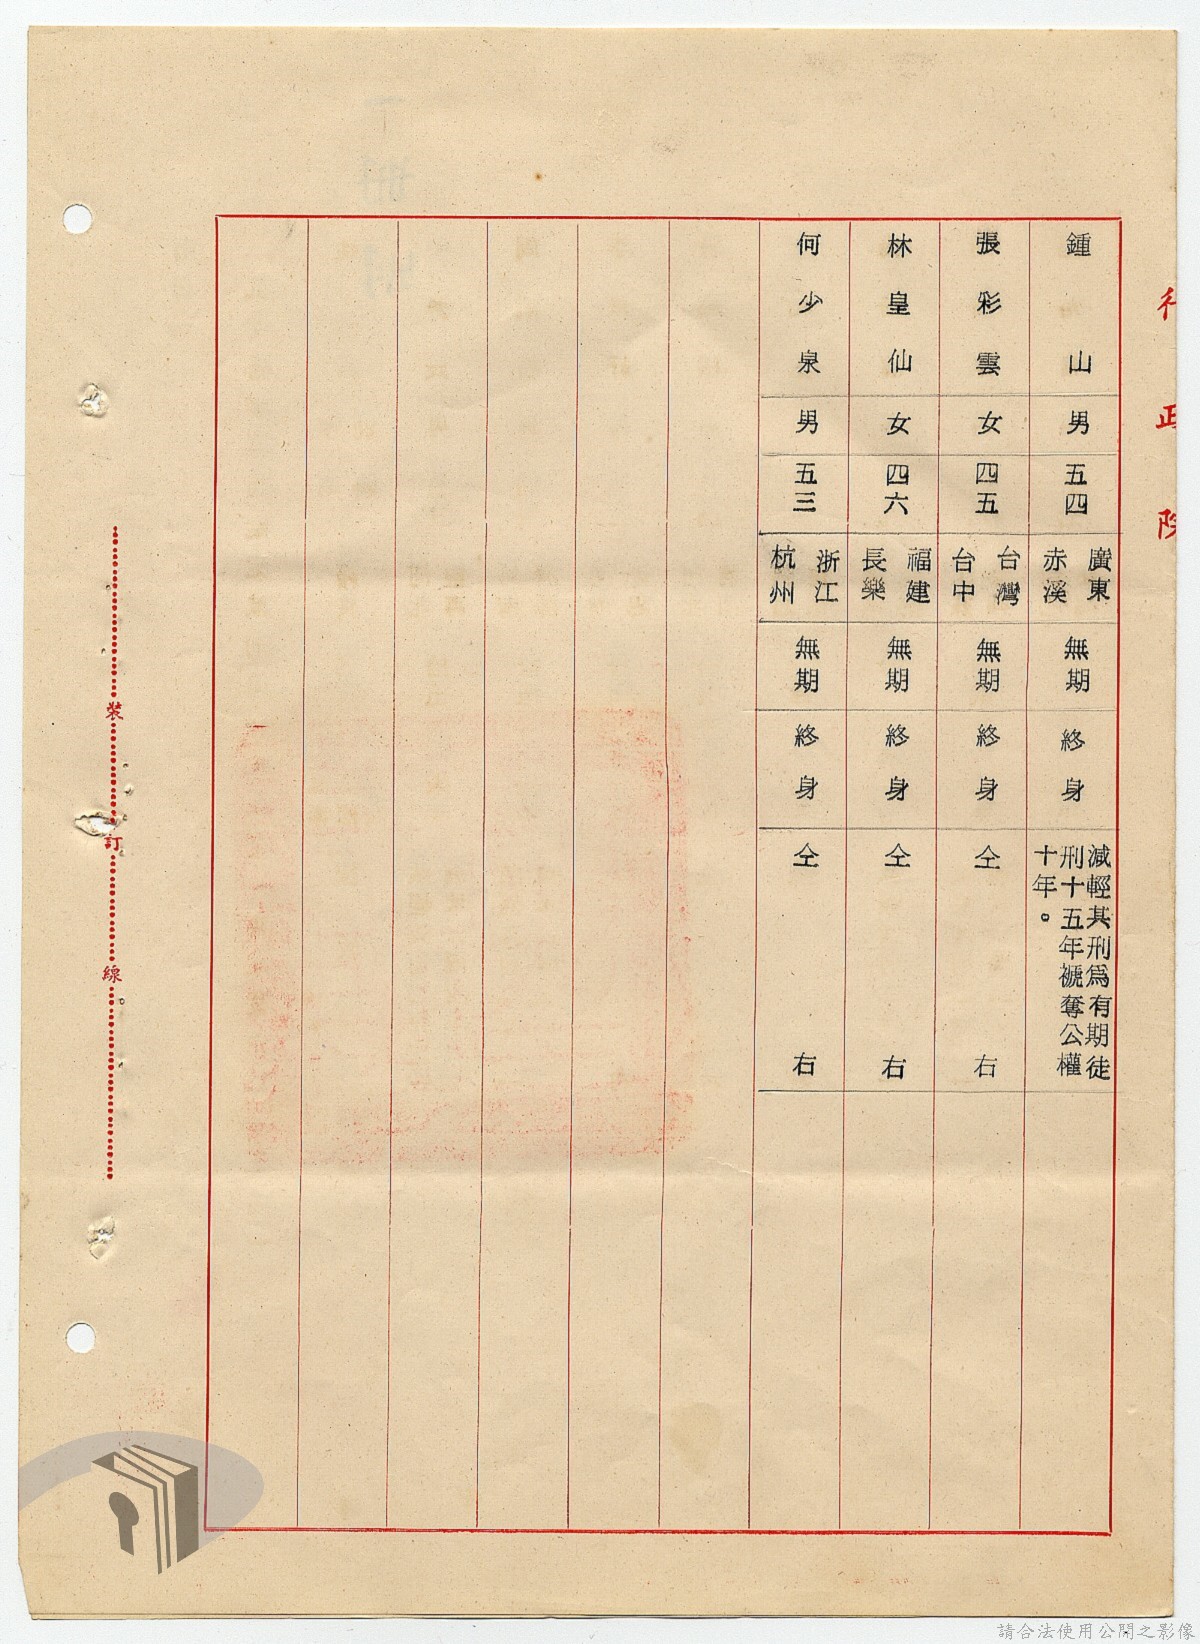 行政院
鍾山
男
五四
廣東
赤溪
無期
終身
減輕其刑爲有期徒
刑十五年褫奪公權
十年。
張彩雲
女
四五
台灣
台中
無期
終身
仝右
林皇仙
女
四六
福建
長樂
無期
終身
仝右
何少泉
男
五三
浙江
杭州
無期
終身
仝右
裝訂線
請合法使用公開之影像